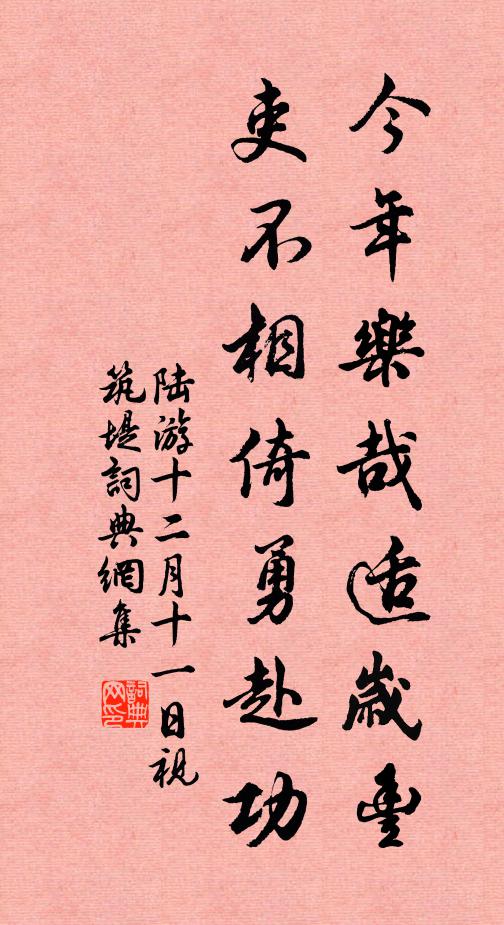 今年樂哉适歲豐
吏不相倚勇赴功
陆游十二月十一日視
筑堤詞典網集
詞典
网印